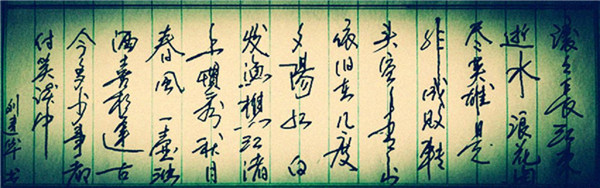 滚滚长江东
逝水 浪花淘
尽英雄 是
非成败转
头空 青山
依旧在 几度
夕陽红 白
发渔樵江渚
上惯看秋月
春风 一壶浊
酒喜相逢 古
今多少事 都
付笑谈中